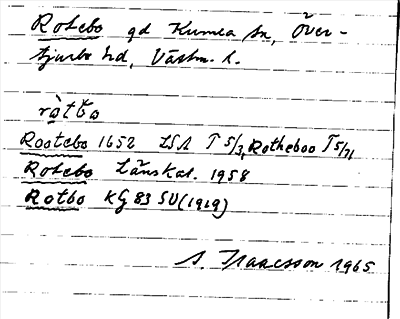 Rotebo gd Kumla sn, Över-
tjurbo hd, Västm. l.
ròtbo
Rootebo 1652 LSA T 5/3, Rotheboo T 5/71
Rotebo Länskal. 1958
Rotbo KG 83 SU (1919)
S. Isaacsson 1965